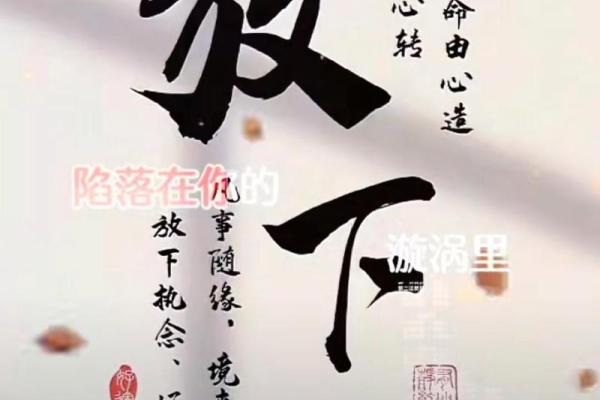 命由心造
心转
放下
凡事随缘，境
放下执念、
陷落在你的
漩涡里